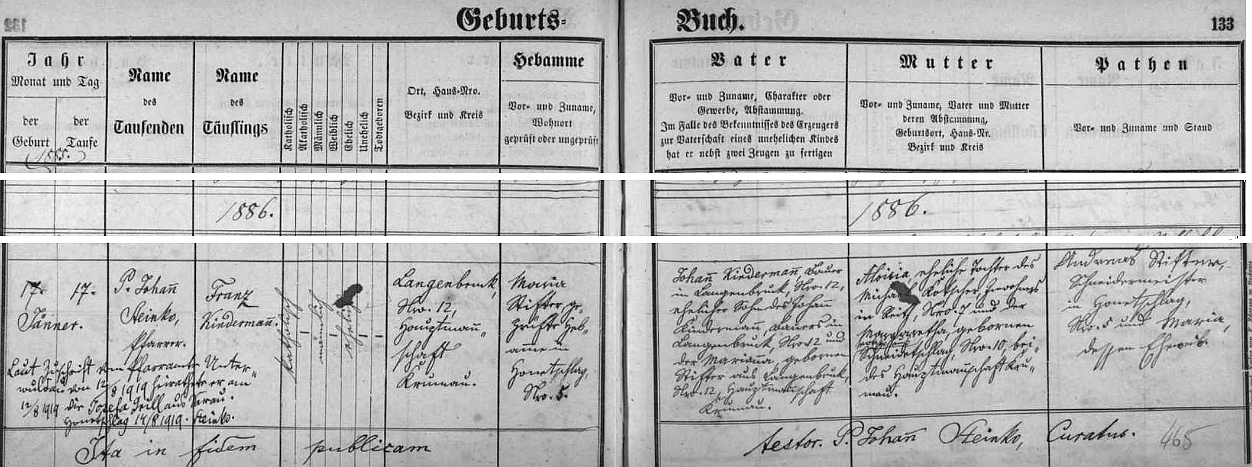 Geburts-
Buch.
133
Jahr
Monat und Tag
der Geburt
der Taufe
1885.
Name
des
Taufenden
Name
des
Täuflings
Katholisch
Akatholisch
Männlich
Weiblich
Ehelich
Unehelich
Todtgeboren
Ort, Haus-Nro.
Bezirk und Kreis
Hebamme
Vor- und Zuname,
Wohnort
geprüft oder ungeprüft
Vater
Vor- und Zuname, Charakter oder
Gewerbe, Abstammung.
Im Falle des Bekenntnisses des Erzeugers
zur Vaterschaft eines unehelichen Kindes
hat er nebst zwei Zeugen zu fertigen
Mutter
Vor- und Zuname, Vater und Mutter
deren Abstammung,
Geburtsort, Haus-Nr.
Bezirk und Kreis
Pathen
Vor- und Zuname und Stand
1886.
1886.
17.
Jänner.
17.
P. Johann
Steinko,
Pfarrer.
Franz
Kindermann.
katholisch
männlich
ehelich
Langenbruk,
Nro. 12,
Hauptmann-
schaft
Krumau.
Maria
Stifter, ge-
prüfte Heb-
amme in
Honetschlag
Nro. 5.
Johann Kindermann, Bauer
in Langenbruk, Nro. 12,
ehelicher Sohn des Johann
Kindermann, Bauers in
Langenbruk, Nro. 12 und
der Mariana, gebornen
Stifter aus Langenbruk,
Nro. 12, Hauptmannschaft
Krumau.
Aloisia, eheliche Tochter des
Michael
in Reith, Nro. 7 und der
Margaretha, gebornen
Nro. 10, bei-
des Hauptmannschaft Kru-
mau.
Andreas Stifter,
Schneidermeister
in Honetschlag,
Nro. 5 und Maria,
dessen Eheweib.
Laut Zuschrift vom Pfarramte Unter-
wuldau vom 12/8 1919 heiratete er am
12/8 1919 die Josefa Trill aus
Honetschlag 14/8 1919. Steinko.
Ita in fidem publicam
testor. P. Johann Steinko, Curatus.
465